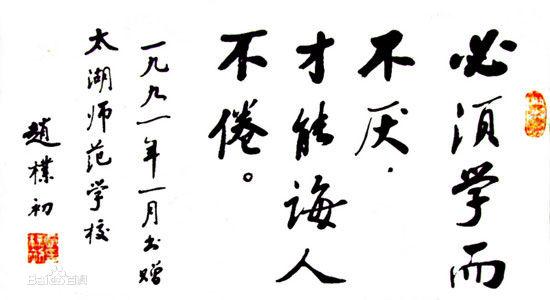 必须学而
不厌.
才能诲人
不倦。
一九九一年一月书赠
太湖师范学校
赵朴初
Baidu百科